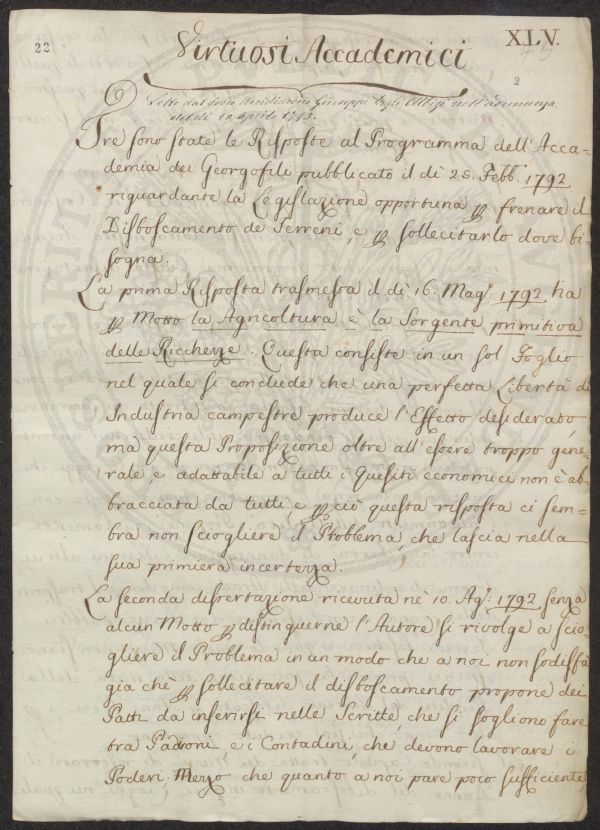 22
XLV.
Virtuosi Accademici
2
Letto dal Socio Giuseppe degli Albizi nell'adunanza
del dì 10 Aprile 1793.
Tre sono state le Risposte al Programma dell'Acca-
demia dei Georgofili pubblicato il dì 25. Febb. 1792
riguardante la Legislazione opportuna p frenare il
Disboscamento de Terreni, e p sollecitarlo dove bi-
sogna.
La prima Risposta trasmessa il dì 16. Mag. 1792. ha
p Motto la Agricoltura è la Sorgente primitiva
delle Ricchezze. Questa consiste in un sol Foglio
nel quale si conclude che una perfetta Libertà di
Industria campestre produce l'Effetto desiderato,
ma questa Proposizione oltre all'essere troppo gene-
rale, e adattabile a tutti i Quesiti economici non è ab-
bracciata da tutti, e p ciò questa risposta ci sem-
bra non sciogliere il Problema, che lascia nella
sua primiera incertezza.
La seconda dissertazione ricevuta nè 10. Ag. 1792 senza
alcun Motto p distinguerne l'Autore si rivolge a scio-
gliere il Problema in un modo che a noi non sodisfà
gia chè p sollecitare il disboscamento propone dei
Patti da inserirsi nelle Scritte, che si sogliono fare
tra Padroni, e i Contadini, che devono lavorare i
Poderi, Mezzo che quanto a noi pare poco sufficiente,